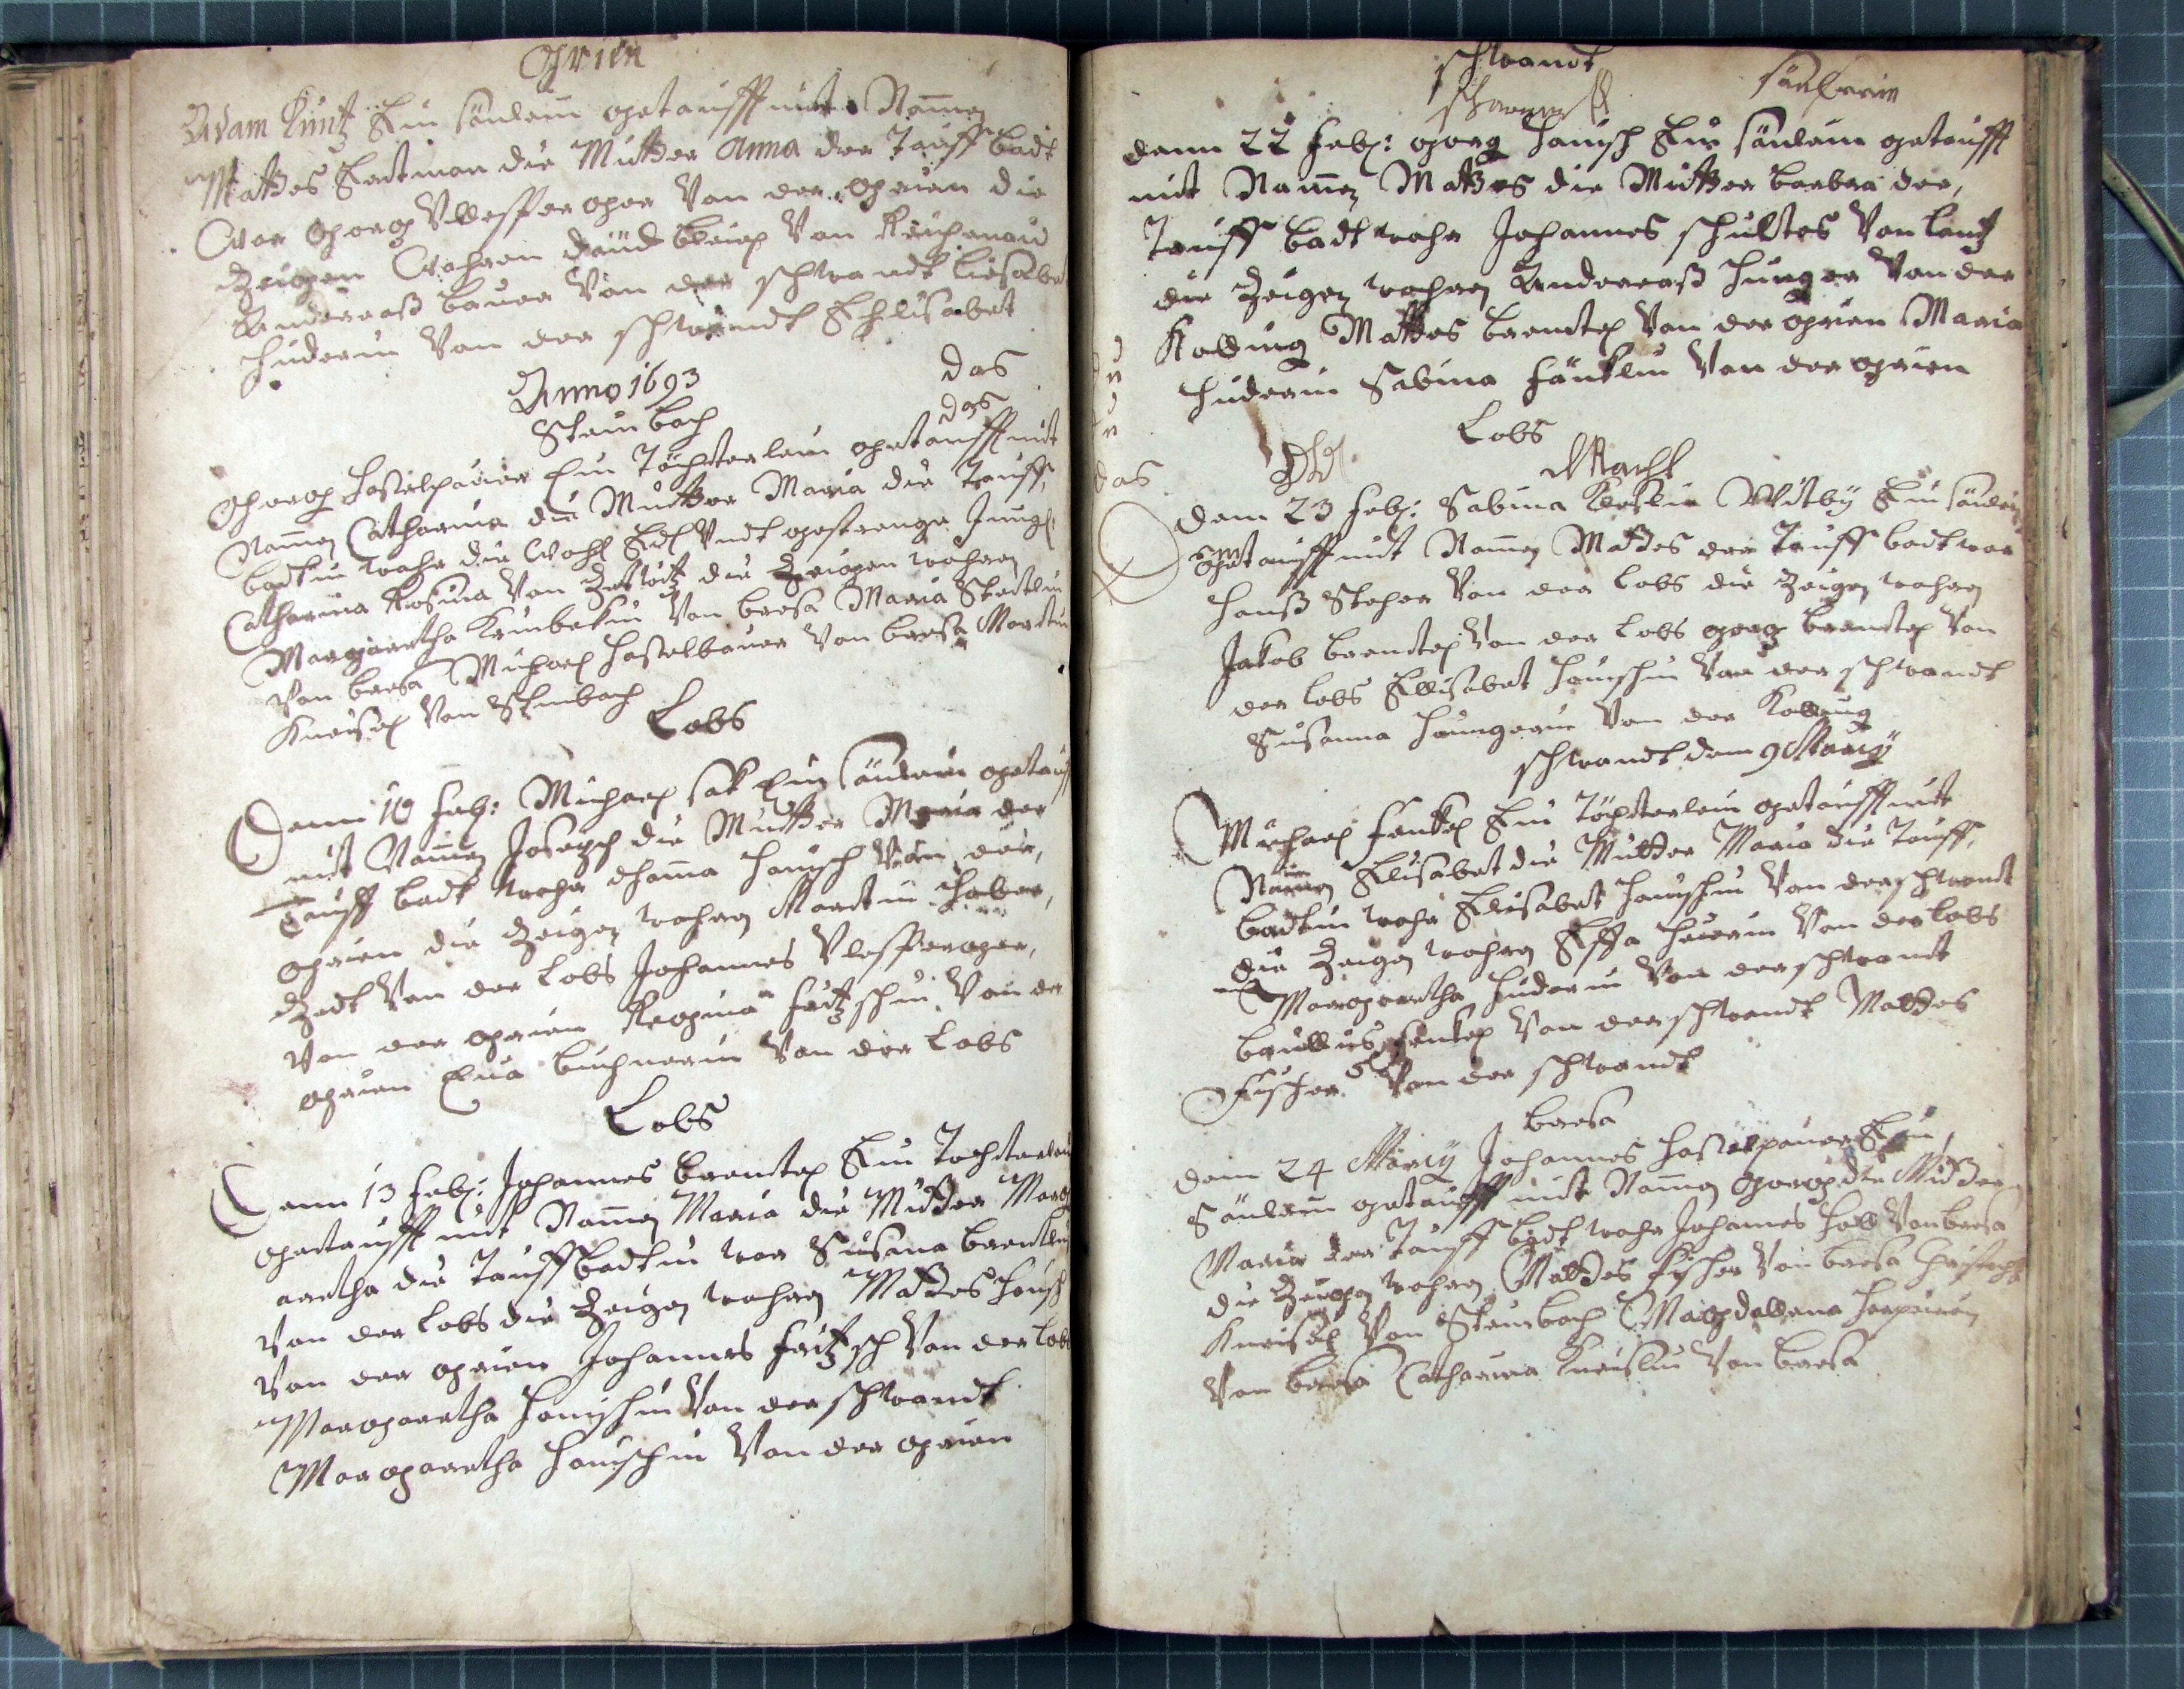 Grien
Adam Kuntz Ein sönlein getaufft mit Namen
Mattes Ertman die Mutter Anna der Tauff badt
war Georg Vllesperger Von der grien die
Zeigen wahren Dauid bleich Von Reichenau
Andereas bauer Von der schwandt Liesabe
Huderin Von der schwandt Ehlisabet
Anno 1693 das
Steinbach das
Georg Haselpauer Ein Töchterlein getaufft mit
Namen Catharina die Mutter Maria die Tauff,
badtin wahr die Wohl Edl Vndt gestrenge Jungf:
Catharina Rosina Von Zettwitz die Zeigen wahren
Margaretha Von bresa Maria
Von bresa Michael Haselbauer Von bresa Martin
Kneisel Von Steinbach
Lobs
Denn 10 Feb: Michael sak Ein sönlein getauf
mit Namen Joseph die Mutter Maria der
Tauff badt wahr Hanna Hanisch Von der,
grien die Zeigen wahren Martin Haber,
Zedt Von der Lobs Johannes Vlesperger,
Von der grien Regina Fritzschin Von der
grien Eua buchnerin Von der Lobs
Lobs
Denn 13 Feb: Johannes brentel Ein Tochterlein
getaufft mit Namen Maria die Mutter Marg
aretha die Tauffbadtin war Susana brentlin
Von der Lobs die Zeigen wahren Mattes Hanisch
Von der grien Johannes Fritzsch Von der Lobs
Margaretha Hanischin Von der schwandt
Margaretha Hanischin Von der grien
schwandt
denn 22 Feb: georg Hanisch Ein sönlein getaufft
mit Namen Mattes die Mutter barbra der,
Tauff badt wahr Johannes schultes Von Lantz
die Zeigen wahren Andereas Hunger Von der
Kolling Mattes brentel Von der grien Maria
Huderin Sabina Fänklin Von der grien
Lobs
das
denn 23 Feb: Sabina Wittby Ein sönlein
getaufft mit Namen Mattes der Tauff badt war
Hans Steher Von der Lobs die Zeigen wahren
Jakob brentel Von der Lobs georg brentel Von
der Lobs Ellisabet Hanischin Von der schwandt
Susanna Hungerin Von der Kolling
schwandt denn 9 Martzy
Michael Fenkel Ein Töchterlein getaufft mit
Namen Elisabet die Mutter Maria die Tauff,
badtin wahr Elisabet Hanischin Von der schwandt
die Zeigen wahren Effa Heierin Von der Lobs
Margaretha Huderin Von der schwandt
Fenkel Von der schwandt Mattes
Fischer Von der schwandt
bresa
denn 24 Martzy Johannes Haselpauer Ein
Sönlein getaufft mit Namen Georg die Mutter
Maria der Tauff badt wahr Johannes Holl Von bresa
die Zeigen wahren Mattes Fischer Von bresa Christoph
Kneisel Von Steinbach Magdallena
Von bresa Catharina Kneislin Von bresa